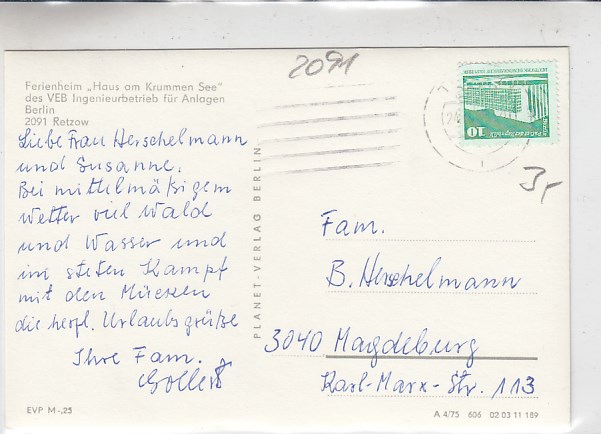 Ferienheim „Haus am Krummen See"
des VEB Ingenieurbetrieb für Anlagen
Berlin
2091 Retzow
Liebe Frau Herschelmann
und Susanne.
Bei mittelmäßigem
Wetter viel Wald
und Wasser und
im steten Kampf
mit den Mücken
die herzl. Urlaubsgrüße
Ihre Fam.
EVP M -,25
PLANET-VERLAG BERLIN
2091
10
3,-
Fam.
B. Herschelmann
3040 Magdeburg
Karl-Marx-Str. 113
A 4/75 606 02 03 11 189